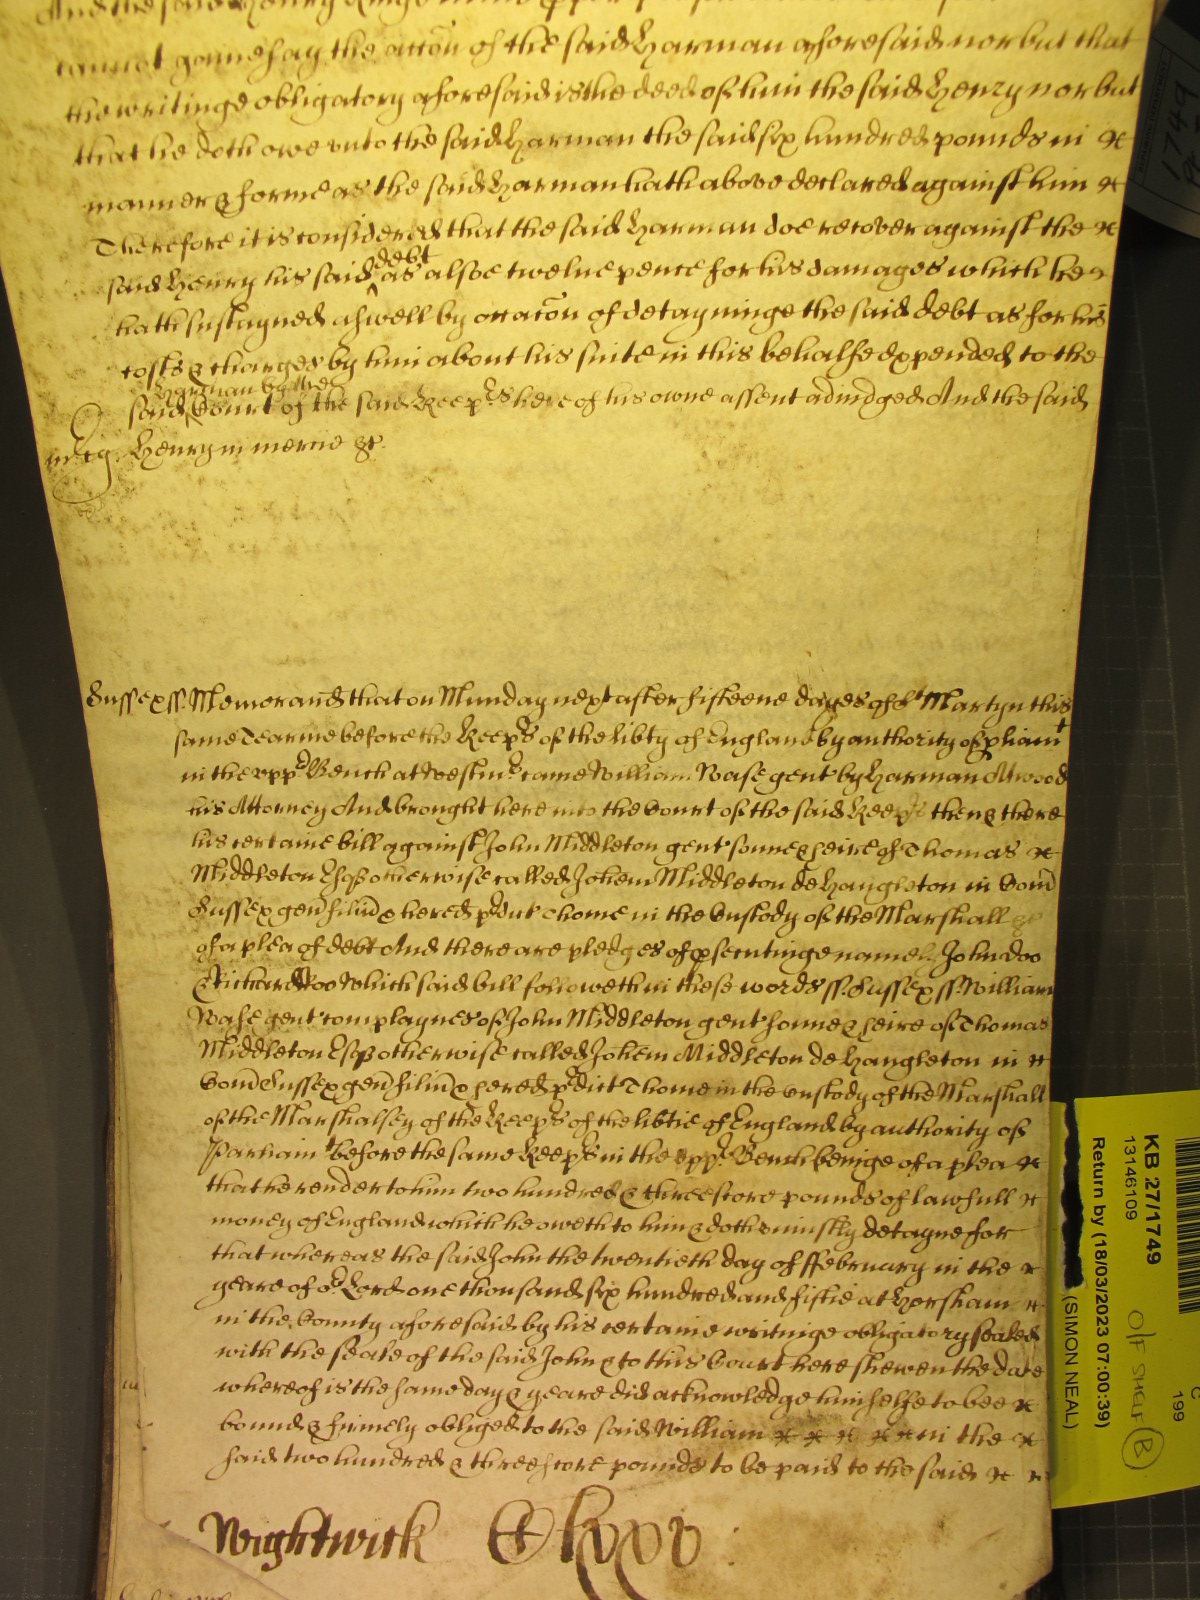 And the said Henry
cannot gainesay the accōn of the said Harman aforesaid nor but that
the writinge obligatory aforesaid is the deed of him the said Henry nor but
that he doth owe vnto the said Harman the said six hundred pounds in
manner & forme as the said Harman hath above declared against him
Therefore it is considered that the said Harman doe recover against the
said Henry his said debt as alsoe twelue pence for his damages which he
hath sustayned aswell by occacōn of detayninge the said debt as for his
costs & charges by him about his suite in this behalfe expended to the
said Harman by the Court of the said Keeprs here of his owne assent adiudged And the said
Henry in mercie &c.
Sussex ss. Memorand that on Munday next after fifteene dayes of st Martyn this
same Tearme before the Keeprs of the libty of England by authority of pliamt
in the vppr Bench at Westmr came William Wase gent by Harman Atwood
his Attorney And brought here into the Court of the said Keeprs then & there
his certaine bill against John Middleton gent sonne & heire of Thomas
Middleton Esqr otherwise called Johem Middleton de Hangleton in Com
Sussex gen filiu & hered pdict Thome in the Custody of the Marshall &c
of a plea of debt And there are pledges of psecutinge namely John Doo
& Richard Roo Which said bill followeth in these words ss. Sussex ss. William
Wase gent complaynes of John Middleton gent sonne & heire of Thomas
Middleton Esqr otherwise called Johem Middleton de Hangleton in
Com Sussex gen filiu & hered pdict Thome in the custody of the Marshall
of the Marshalsey of the Keeprs of the libtie of England by authority of
Parliamt before the same Keeprs in the vppr Bench beinge of a plea
that he render to him two hundred & threescore pounds of lawfull
money of England which he oweth to him & doth vniustly detayne for
that whereas the said John the twentieth day of ffebruary in the
yeare of or Lord one thousand six hundred and fiftie at Horsham
in the County aforesaid by his certaine writinge obligatory sealed
with the seale of the said John & to this Court here shewen the date
whereof is the same day & yeare did acknowledge himselfe to bee
bound & firmely obliged to the said William in the
said two hundred & threescore pounds to be paid to the said
Wightwick
KB 27/1749
13146109
Return by (18/03/2023 07:00:39)
(SIMON NEAL)
O/F SHELF B
199
1749